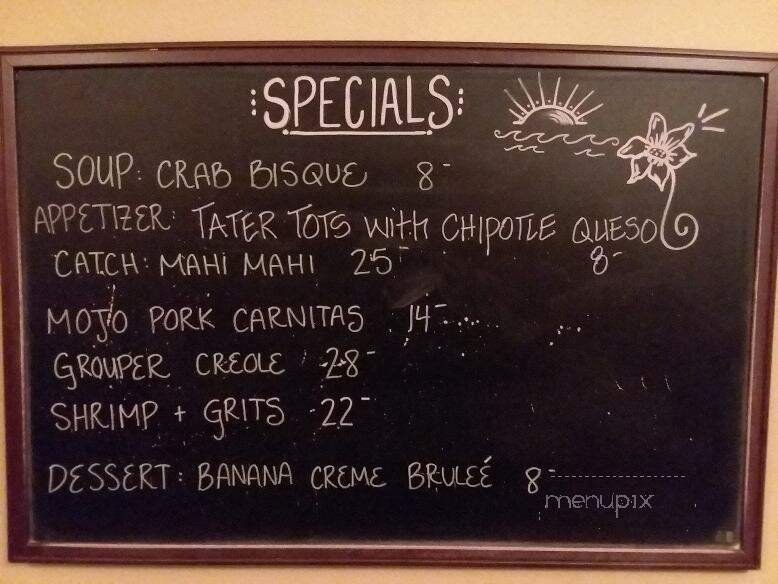 :SPECIALS:
SOUP: CRAB BISQUE 8-
APPETIZER: TATER TOTS with CHIPOTLE QUESO
8-
CATCH: MAHI MAHI 25-
MOJO PORK CARNITAS 14-
GROUPER CREOLE -28-
SHRIMP + GRITS -22-
DESSERT: BANANA CREME BRULEÉ 8-
menupix